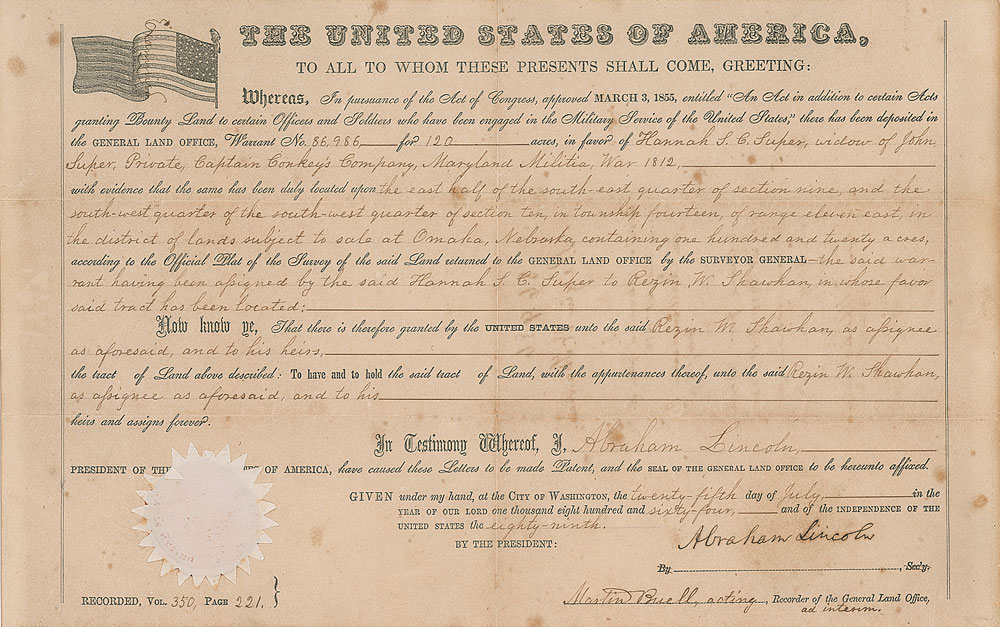 THE UNITED STATES OF AMERICA,
TO ALL TO WHOM THESE PRESENTS SHALL COME, GREETING:
Whereas, In pursuance of the Act of Congress, approved MARCH 3, 1855, entitled "An Act in addition to certain Acts
granting Bounty Land to certain Officers and Soldiers who have been engaged in the Military Service of the United States," there has been deposited in
the GENERAL LAND OFFICE, Warrant No. 86,986 for 120 acres, in favor of Hannah S. C. Super, widow of John
Super, Private, Captain Conkey's Company, Maryland Militia, War 1812,
with evidence that the same has been duly located upon the east half of the south-east quarter of section nine, and the
south-west quarter of the south-west quarter of section ten, in township fourteen, of range eleven east, in
the district of lands subject to sale at Omaha, Nebraska, containing one hundred and twenty acres,
according to the Official Plat of the Survey of the said Land returned to the GENERAL LAND OFFICE by the SURVEYOR GENERAL—the said war-
rant having been assigned by the said Hannah S. C. Super to Rezin W. Shawhan, in whose favor
said tract has been located:
Now know ye, That there is therefore granted by the UNITED STATES unto the said Rezin W. Shawhan, as assignee
as aforesaid, and to his heirs,
the tract of Land above described: To have and to hold the said tract of Land, with the appurtenances thereof, unto the said Rezin W. Shawhan,
as assignee as aforesaid, and to his
heirs and assigns forever.
In Testimony Whereof, I, Abraham Lincoln,
PRESIDENT OF THE OF AMERICA, have caused these Letters to be made Patent, and the SEAL OF THE GENERAL LAND OFFICE to be hereunto affixed.
GIVEN under my hand, at the CITY OF WASHINGTON, the twenty-fifth day of July, in the
YEAR OF OUR LORD one thousand eight hundred and sixty-four, and of the INDEPENDENCE OF THE
UNITED STATES the eighty-ninth.
BY THE PRESIDENT: Abraham Lincoln
By , Sec'y.
RECORDED, VOL. 350, PAGE 221. Martin Buell, acting, Recorder of the General Land Office,
ad interim.